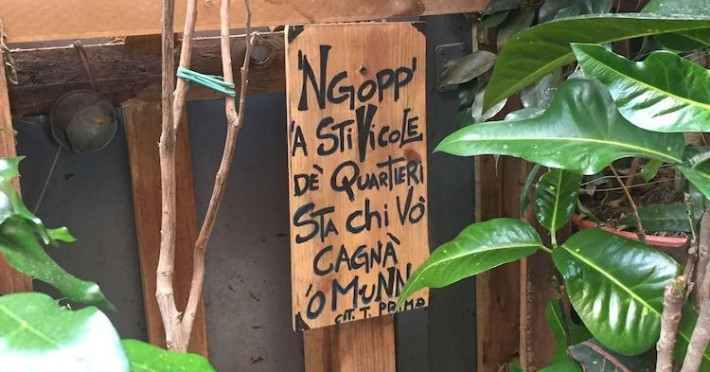 'NGOPP'
'A STI VICOLE
DÈ QUARTIERI
STA CHI VÔ
CAGNÀ
'O MUNN
CIT. T. PRIMA